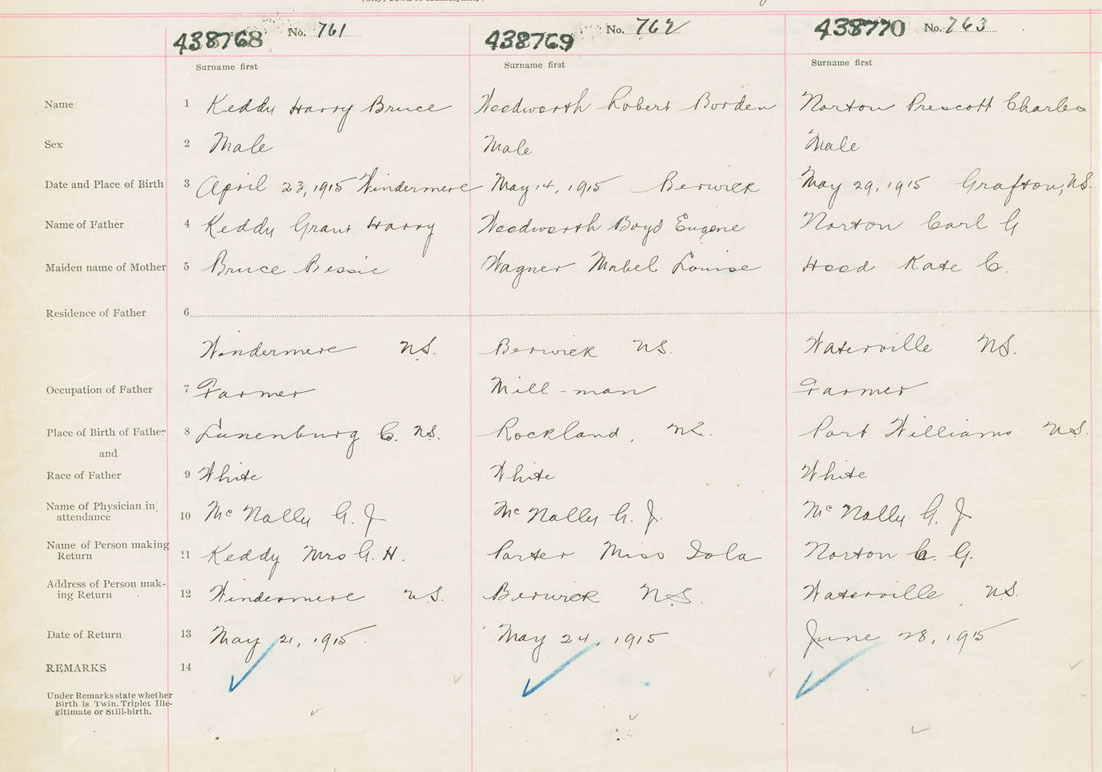 438768 No. 761 438769 No. 762 438770 No. 763
Surname first Surname first Surname first
Name 1 Keddy Harry Bruce Woodworth Robert Borden Norton Prescott Charles
Sex 2 Male Male Male
Date and Place of Birth 3 April 23, 1915 Windermere May 14, 1915 Berwick May 29, 1915 Grafton, N.S.
Name of Father 4 Keddy Grant Harry Woodworth Boyd Eugene Norton Carl G
Maiden name of Mother 5 Bruce Bessie Wagner Mabel Louise Hood Kate C.
Residence of Father 6
Windermere N.S. Berwick N.S. Waterville N.S.
Occupation of Father 7 Farmer Mill-man Farmer
Place of Birth of Father 8 Lunenburg Co. N.S. Rockland, N.S. Port Williams N.S.
and
Race of Father 9 White White White
Name of Physician in
attendance 10 McNally G. J McNally G. J. McNally G. J
Name of Person making
Return 11 Keddy Mrs G. H. Porter Miss Iola Norton C. G.
Address of Person mak-
ing Return 12 Windermere N.S. Berwick N.S. Waterville, N.S.
Date of Return 13 May 21, 1915 May 24, 1915 June 28, 1915
REMARKS 14
Under Remarks state whether
Birth is Twin, Triplet Ille-
gitimate or Still-birth.